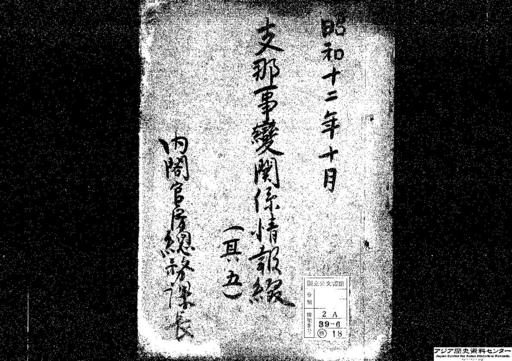 昭和十二年十月
支那事變関係情報綴
(其五)
内閣官房總務課長
国立公文書館
分類
排架番号
2A
39-6
18
アジア歴史資料センター
Japan Center for Asian Historical Records